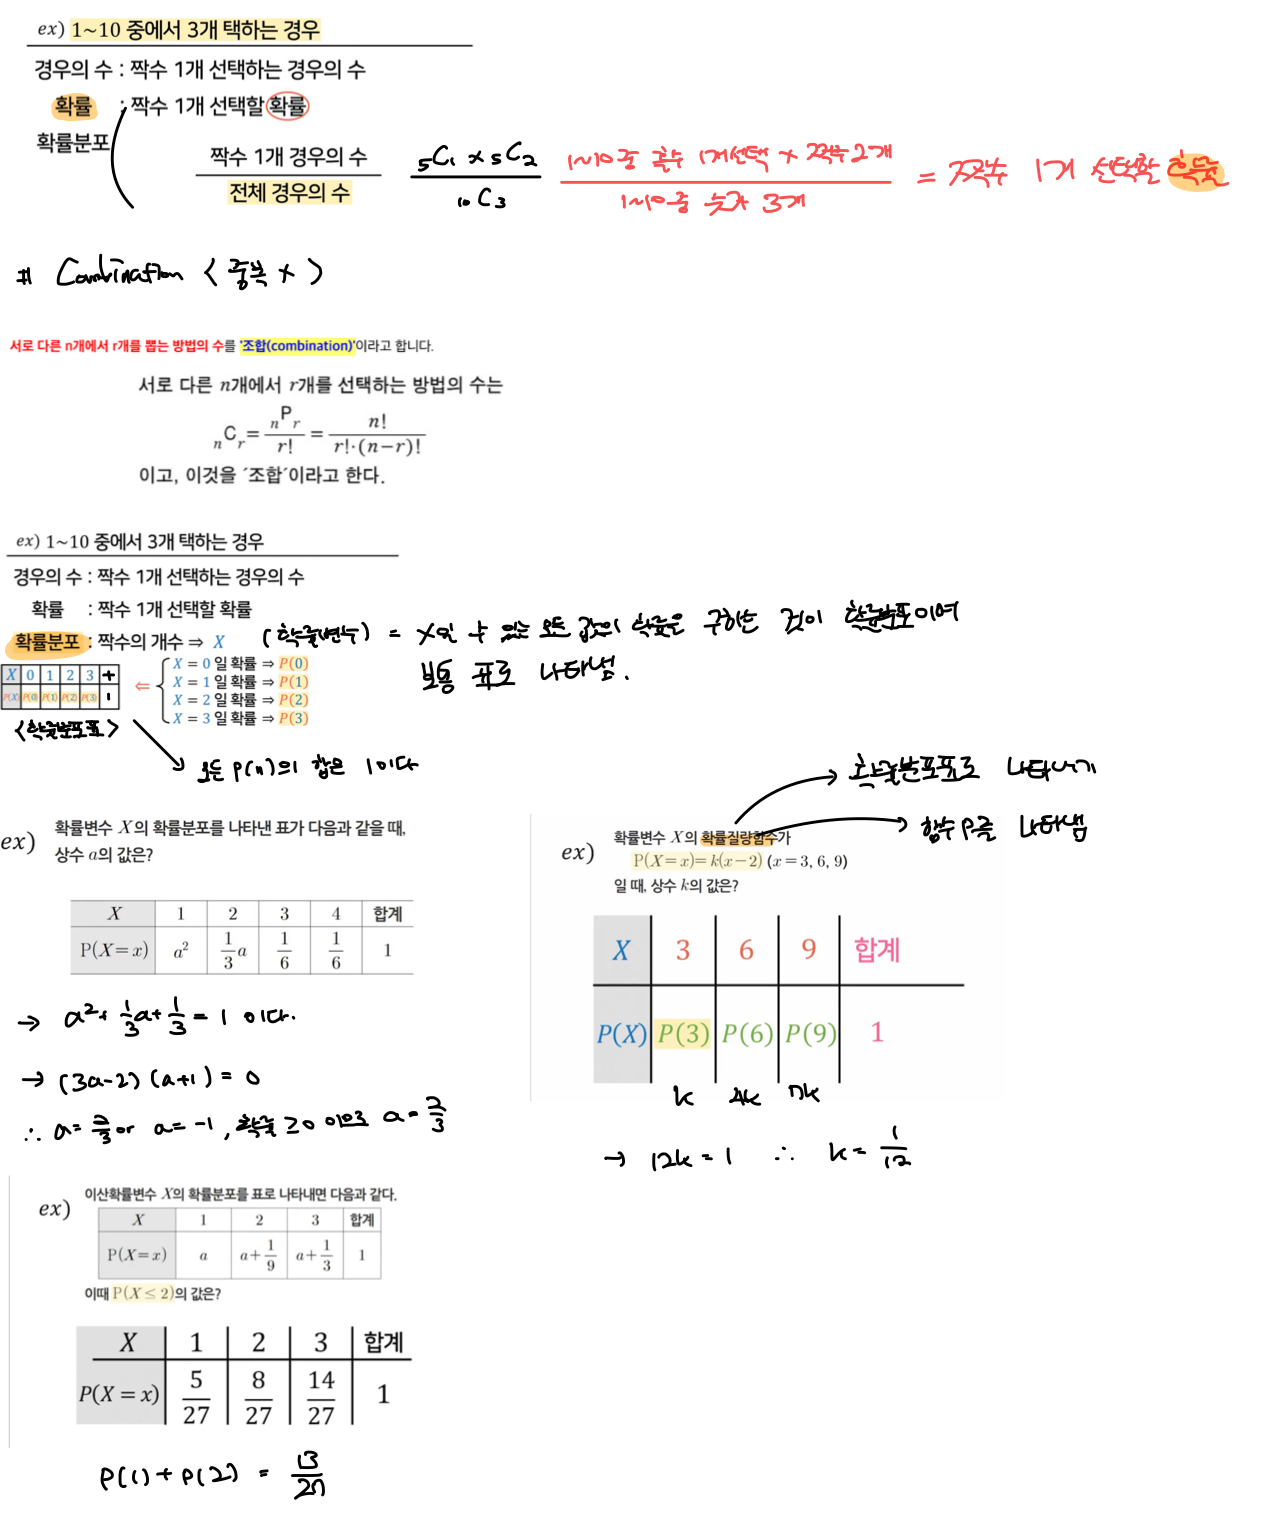 ex) 1~10 중에서 3개 택하는 경우
경우의 수 : 짝수 1개 선택하는 경우의 수
확률 : 짝수 1개 선택할 확률
확률분포
짝수 1개 경우의 수 / 전체 경우의 수
₅C₁ × ₅C₂ / ₁₀C₃
1~10중 홀수 1개선택 × 짝수2개 / 1~10중 숫자 3개 = 짝수 1개 선택할 확률
# Combination < 중복 × >
서로 다른 n개에서 r개를 뽑는 방법의 수를 '조합(combination)'이라고 합니다.
서로 다른 n개에서 r개를 선택하는 방법의 수는
nCr = nPr / r! = n! / r!·(n−r)!
이고, 이것을 ´조합´이라고 한다.
ex) 1~10 중에서 3개 택하는 경우
경우의 수 : 짝수 1개 선택하는 경우의 수
확률 : 짝수 1개 선택할 확률
확률분포 : 짝수의 개수 ⇒ X (확률변수) = X일 수 있는 모든 값의 확률을 구하는 것이 확률분포이며
보통 표로 나타냄.
X 0 1 2 3 +
P(X) P(0) P(1) P(2) P(3) 1
<확률분포표>
⇐
X = 0 일 확률 ⇒ P(0)
X = 1 일 확률 ⇒ P(1)
X = 2 일 확률 ⇒ P(2)
X = 3 일 확률 ⇒ P(3)
모든 P(n)의 합은 1이다
ex) 확률변수 X의 확률분포를 나타낸 표가 다음과 같을 때,
상수 a의 값은?
X 1 2 3 4 합계
P(X=x) a² 1/3 a 1/6 1/6 1
→ a² + 1/3 a + 1/3 = 1 이다.
→ (3a−2)(a+1) = 0
∴ a = 2/3 or a = −1, 확률 ≥ 0 이므로 a = 2/3
확률분포표로 나타내기
함수 P를 나타냄
ex) 확률변수 X의 확률질량함수가
P(X=x)=k(x−2) (x=3, 6, 9)
일 때, 상수 k의 값은?
X 3 6 9 합계
P(X) P(3) P(6) P(9) 1
k 4k 7k
→ 12k = 1 ∴ k = 1/12
ex) 이산확률변수 X의 확률분포를 표로 나타내면 다음과 같다.
X 1 2 3 합계
P(X=x) a a+1/9 a+1/3 1
이때 P(X ≤ 2)의 값은?
X 1 2 3 합계
P(X = x) 5/27 8/27 14/27 1
P(1) + P(2) = 13/27